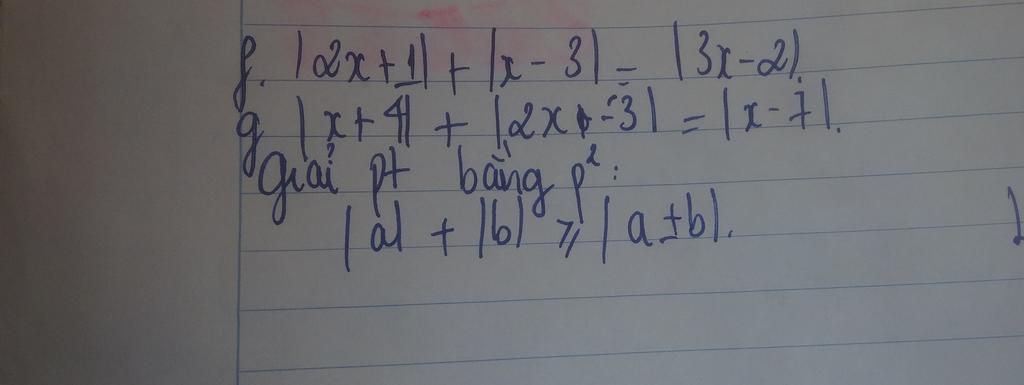 f. |2x+1| + |x-3| = |3x-2|.
g |x+4| + |2x-3| = |x-7|.
Giải pt bằng p²:
|a| + |b| ⩾ |a±b|.